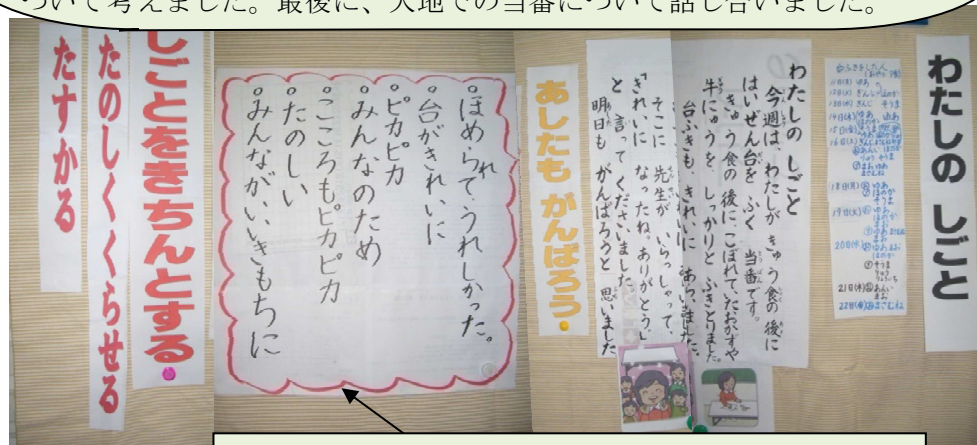 ついて考えました。最後に、大地での当番について話し合いました。
わたしの しごと
台ふきをした人
18日(月)
19日(火)
20日(水)
21日(木)
22日(金)
わたしの しごと
今週は、わたしが きゅう食の後に
はいぜん台を ふく 当番です。
きゅう食の後に、こぼれていたおかずや
牛にゅうを しっかりと ふきとりました。
台ふきも、きれいに あらいました。
そこに 先生が いらっしゃって、
「きれいに なったね。ありがとう。」
と 言って くださいました。
明日も がんばろうと 思いました
あしたも がんばろう。
○ほめられて、うれしかった。
○台がきれいに
○ピカピカ
○みんなのため
○こころもピカピカ
○たのしい
○みんながいいきもちに
しごとをきちんとする
たのしくくらせる
たすかる